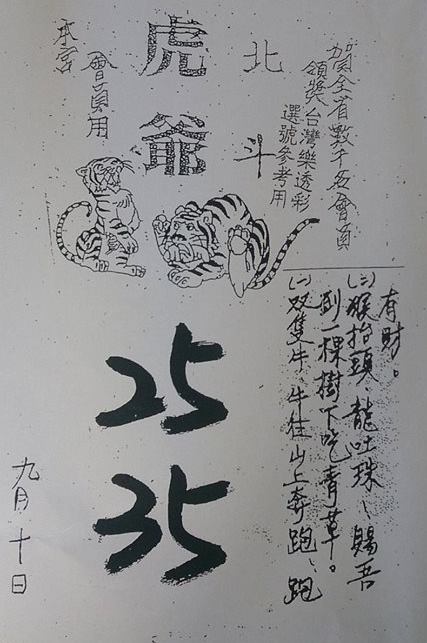 賀全省數千名會員
領獎台灣樂透彩
選號參考用
北斗
虎爺
會員用
本宮
有財。
(二)猴抬頭、龍吐珠、賜吾
到一棵樹下吃青草。
(一)双隻牛、牛往山上奔跑、跑
25
35
九月十日